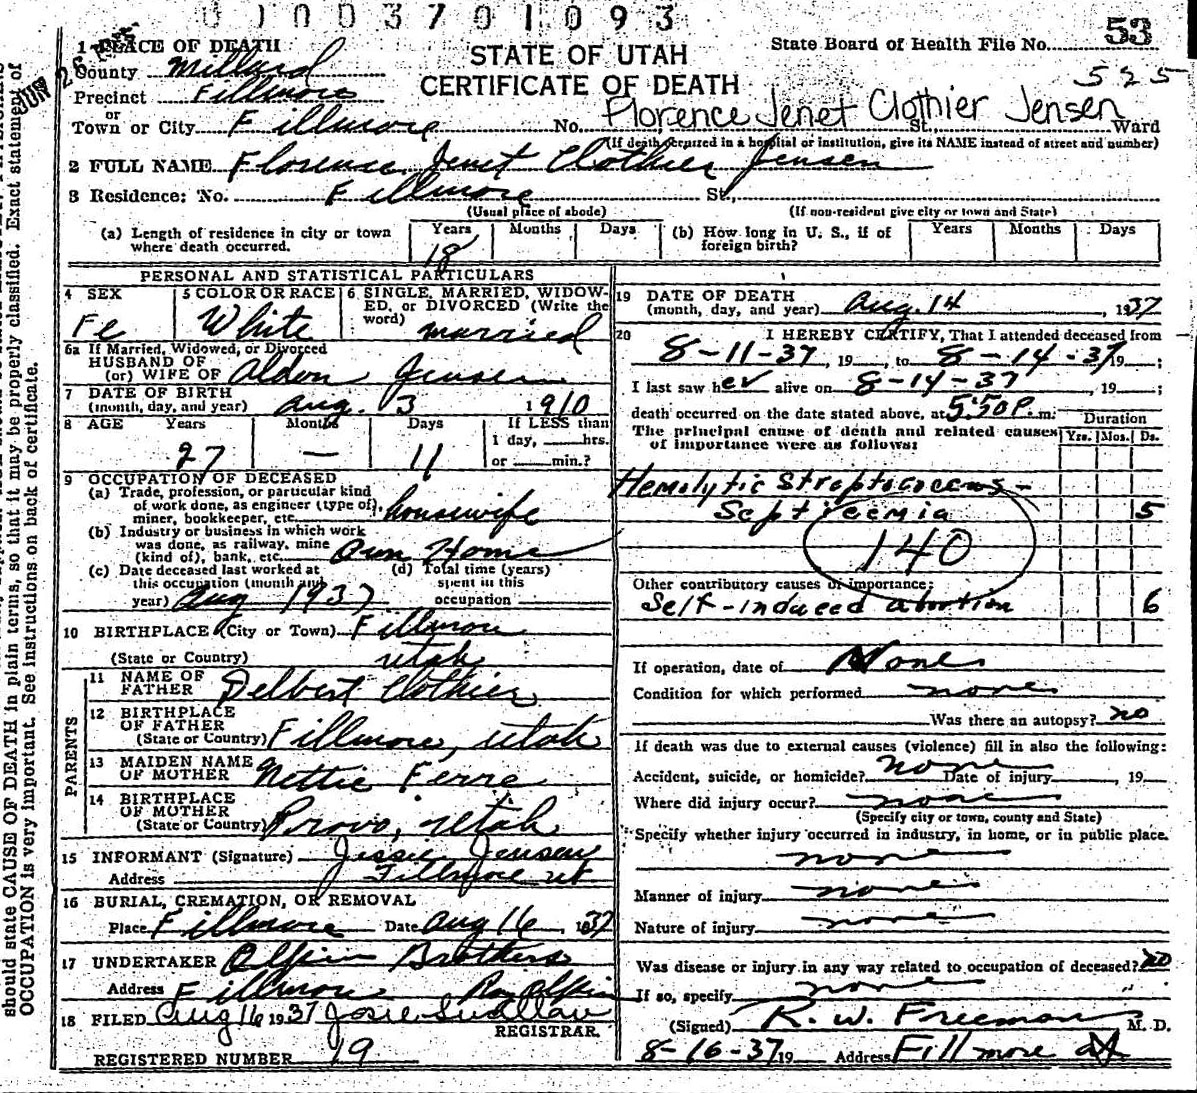 0 1 0 0 3 7 0 1 0 9 3
53
1 PLACE OF DEATH
STATE OF UTAH
State Board of Health File No.
County Millard
CERTIFICATE OF DEATH
525
Precinct Fillmore
or
Town or City Fillmore No. Florence Jenet Clothier Jensen St. Ward
(If death occurred in a hospital or institution, give its NAME instead of street and number)
2 FULL NAME Florence Jenet Clothier Jensen
3 Residence: No. Fillmore St.,
(Usual place of abode) (If non-resident give city or town and State)
(a) Length of residence in city or town where death occurred. Years 18 Months Days
(b) How long in U. S., if of foreign birth? Years Months Days
PERSONAL AND STATISTICAL PARTICULARS
4 SEX Fe
5 COLOR OR RACE White
6 SINGLE, MARRIED, WIDOWED, or DIVORCED (Write the word) married
6a If Married, Widowed, or Divorced
HUSBAND OF
(or) WIFE OF Aldon Jensen
7 DATE OF BIRTH
(month, day, and year) Aug. 3 1910
8 AGE Years Months Days If LESS than
1 day, hrs.
27 — 11 or min.?
9 OCCUPATION OF DECEASED
(a) Trade, profession, or particular kind
of work done, as engineer (type of),
miner, bookkeeper, etc. housewife
(b) Industry or business in which work
was done, as railway, mine
(kind of), bank, etc. Own Home
(c) Date deceased last worked at
this occupation (month and
year) Aug 1937
(d) Total time (years)
spent in this
occupation
10 BIRTHPLACE (City or Town) Fillmore
(State or Country) Utah
PARENTS
11 NAME OF
FATHER Delbert Clothier
12 BIRTHPLACE
OF FATHER
(State or Country) Fillmore, Utah
13 MAIDEN NAME
OF MOTHER Nettie Ferre
14 BIRTHPLACE
OF MOTHER
(State or Country) Provo, Utah
15 INFORMANT (Signature) Jessie Jensen
Address Fillmore ut
16 BURIAL, CREMATION, OR REMOVAL
Place Fillmore Date Aug 16, 1937
17 UNDERTAKER Olpin Brothers
Address Fillmore Roy Olpin
18 FILED Aug 16 1937 Josie Swallow
REGISTRAR.
REGISTERED NUMBER 19
19 DATE OF DEATH
(month, day, and year) Aug. 14, 1937
20 I HEREBY CERTIFY, That I attended deceased from
8-11-37, 19, to 8-14-37 19;
I last saw her alive on 8-14-37, 19;
death occurred on the date stated above, at 5:50 P. m.
The principal cause of death and related causes
of importance were as follows:
Duration
Yrs. Mos. Ds.
Hemolytic Streptococcus-
Septicemia 5
140
Other contributory causes of importance:
Self-induced abortion 6
If operation, date of None
Condition for which performed none
Was there an autopsy? no
If death was due to external causes (violence) fill in also the following:
Accident, suicide, or homicide? none Date of injury, 19
Where did injury occur? none
(Specify city or town, county and State)
Specify whether injury occurred in industry, in home, or in public place.
none
Manner of injury none
Nature of injury none
Was disease or injury in any way related to occupation of deceased? no
If so, specify none
(Signed) R. W. Freeman M. D.
8-16-37 19 Address Fillmore Ut
should state CAUSE OF DEATH in plain terms, so that it may be properly classified. Exact statement of
OCCUPATION is very important. See instructions on back of certificate.